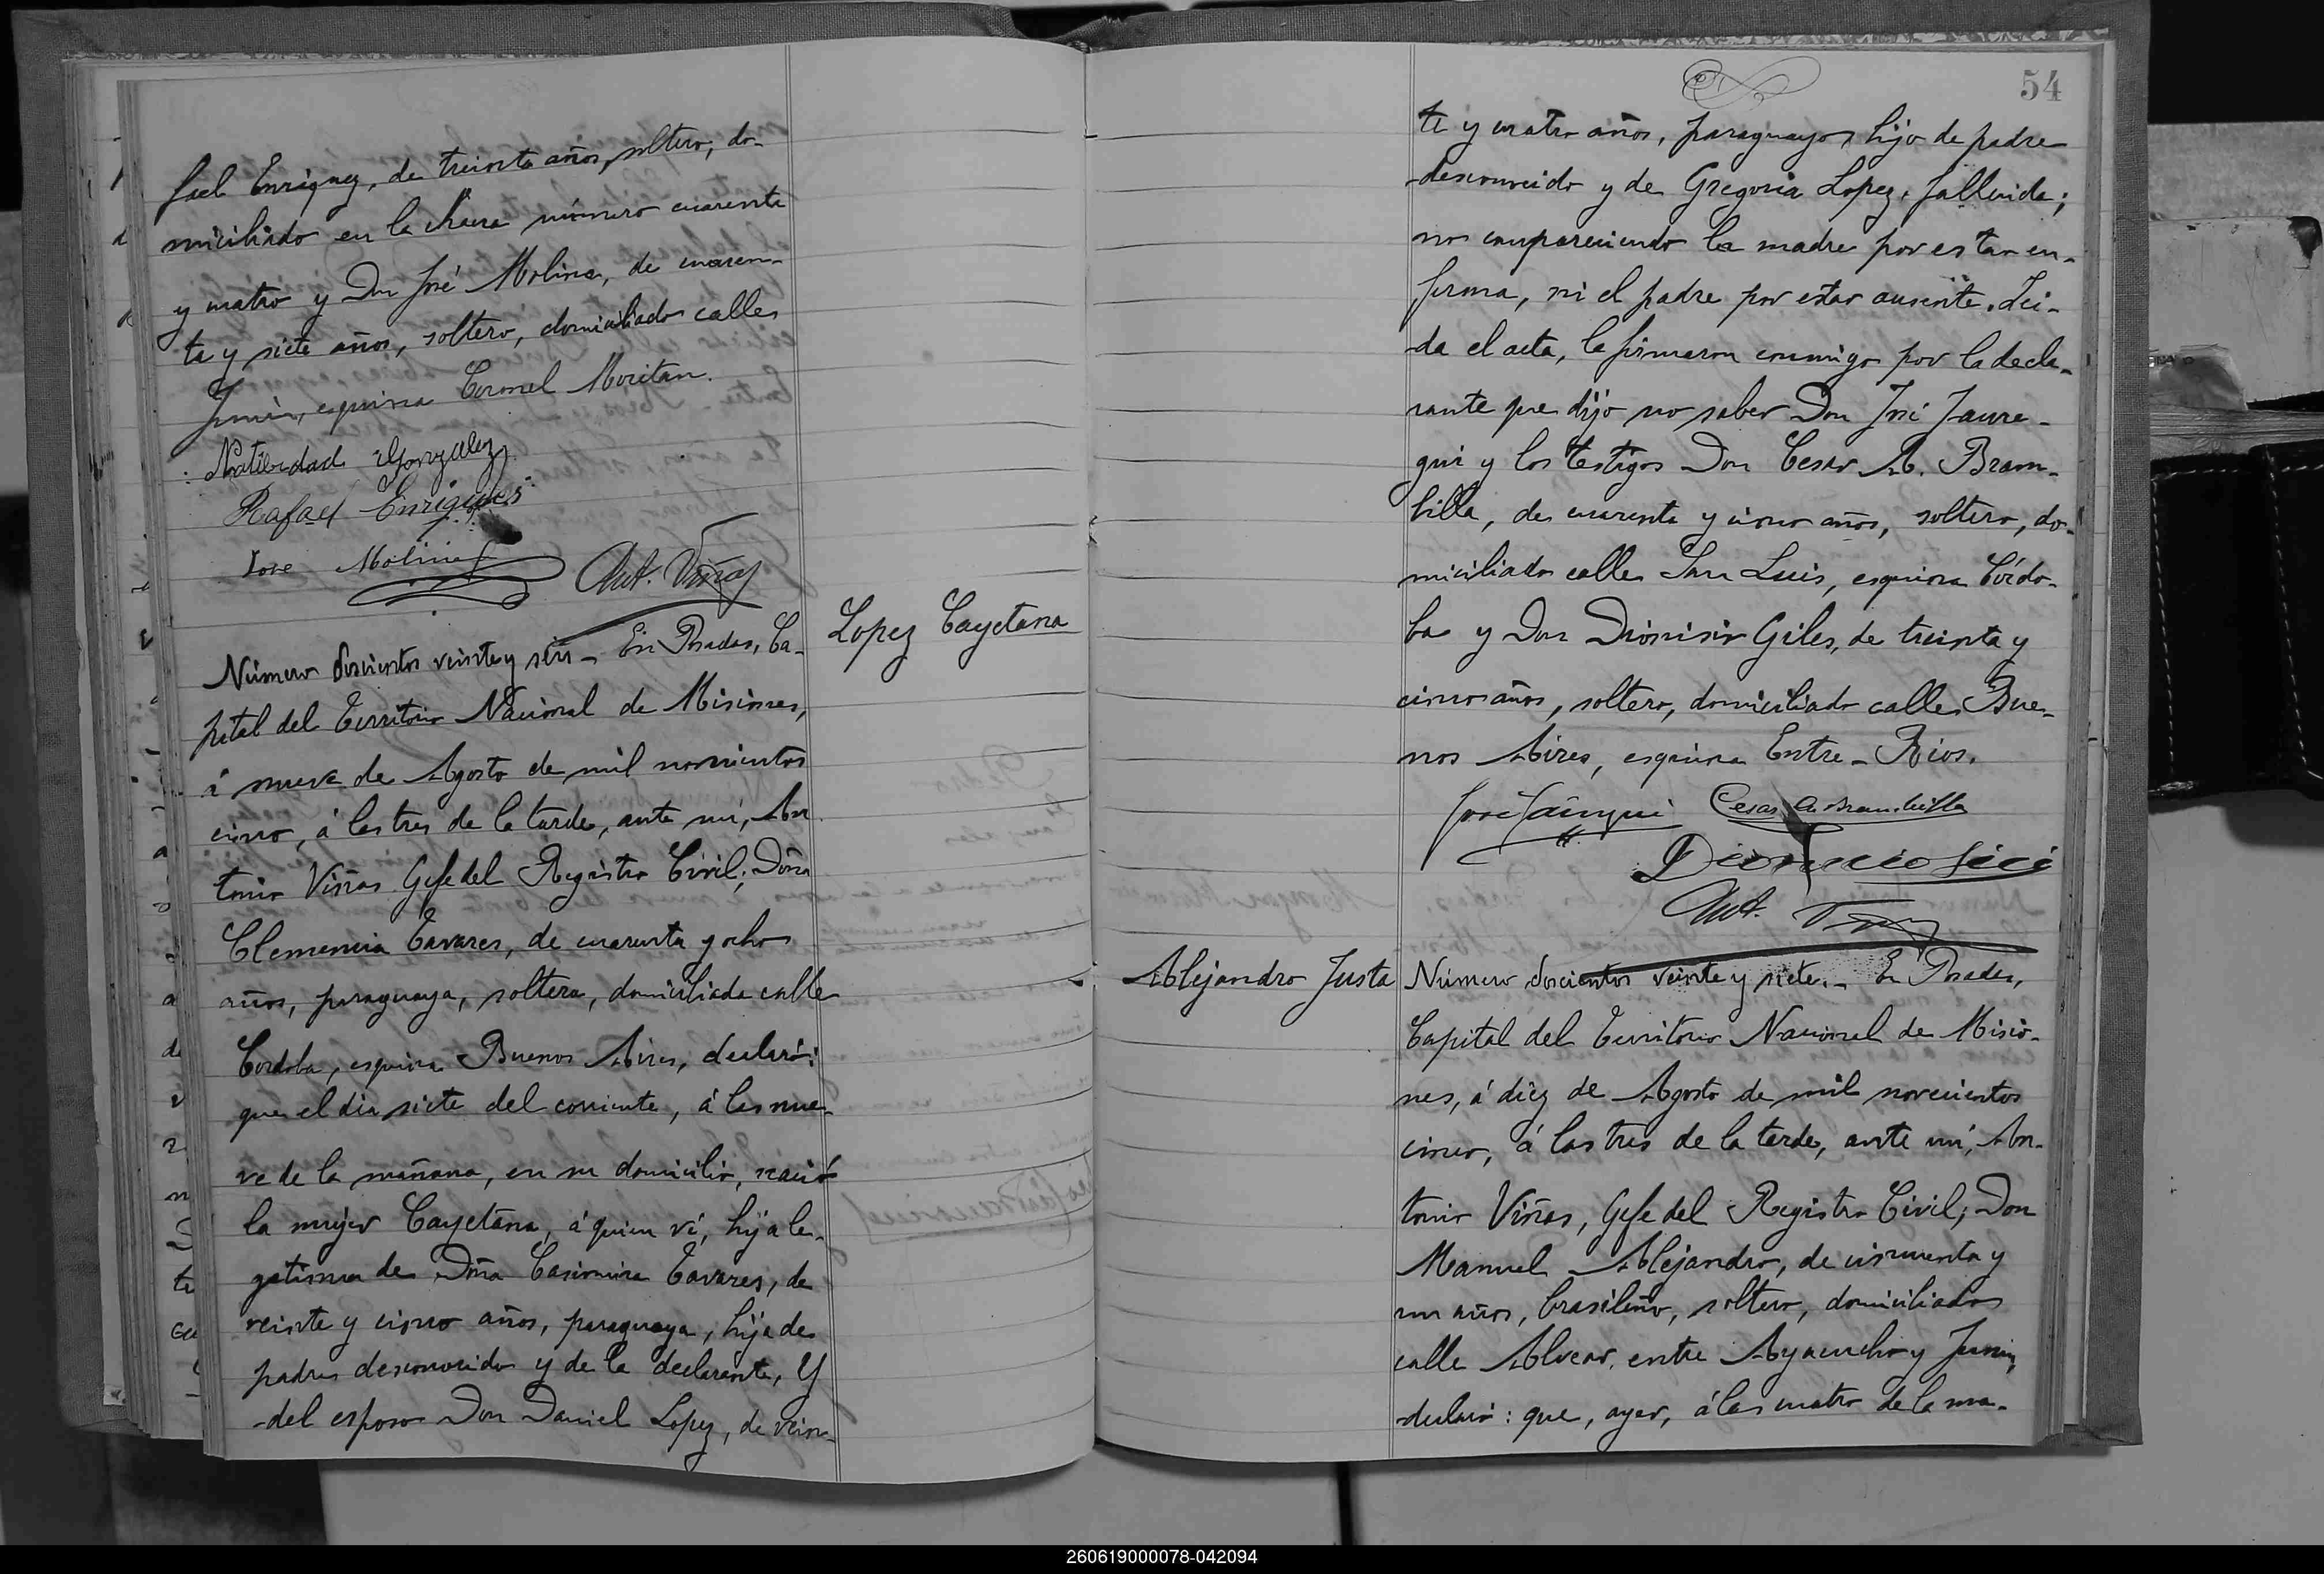 fael Enriquez, de treinta años, soltero, do-
miciliado en la chacra número cuarenta
y cuatro y Don José Molina, de cuaren-
ta y siete años, soltero, domiciliado calle
Junin, esquina Coronel Moritan.
Natibidad Gonzalez
Rafael Enriques
Jose Molina
Ant. Viñas
Lopez Cayetana
Número doscientos veinte y seis - En Posadas, Ca-
pital del Territorio Nacional de Misiones,
á nueve de Agosto de mil novecientos
cinco, á las tres de la tarde, ante mí, An
tonio Viñas Gefe del Registro Civil; Doña
Clemencia Tavares, de cuarenta y ocho
años, paraguaya, soltera, domiciliada calle
Cordoba, esquina Buenos Aires, declaró:
que el dia siete del corriente, á las nue-
ve de la mañana, en su domicilio, nació
la mujer Cayetana, á quien ví, hija le-
gitima de Doña Casimira Tavares, de
veinte y cinco años, paraguaya, hija de
padre desconocido y de la declarante, y
del esposo Don Daniel Lopez, de vein-
54
te y cuatro años, paraguayo, hijo de padre
desconocido y de Gregoria Lopez, fallecida;
no compareciendo la madre por estar en-
ferma, ni el padre por estar ausente. Lei-
da el acta, la firmaron conmigo por la decla-
rante que dijo no saber Don José Jaure-
gui y los testigos Don Cesar A. Bram-
billa, de cuarenta y cinco años, soltero, do-
miciliado calle San Luis, esquina Córdo-
ba y Don Dionisio Giles, de treinta y
cinco años, soltero, domiciliado calle Bue-
nos Aires, esquina Entre-Rios.
José Jáuregui Cesar A Brambilla
Ant. Viñas
Alejandro Justa
Número doscientos veinte y siete.- En Posadas,
Capital del Territorio Nacional de Misio-
nes, á diez de Agosto de mil novecientos
cinco, á las tres de la tarde, ante mí, An-
tonio Viñas, Gefe del Registro Civil; Don
Manuel Alejandro, de cincuenta y
un años, brasileño, soltero, domiciliado
calle Alvear, entre Ayacucho y Junin,
declaró: que, ayer, á las cuatro de la ma-
260619000078-042094